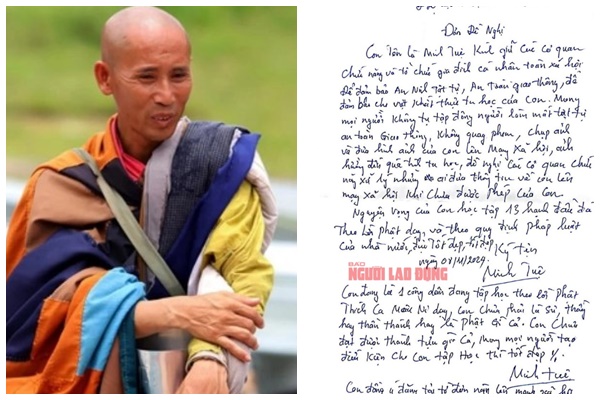 Đơn Đề Nghị
Con tên là Minh Tuệ Kính gửi các cơ quan
chức năng và tổ chức gia đình cá nhân toàn xã hội
Để đảm bảo An Ninh tật tự, An toàn giao thông, để
đảm bảo cho việt Khất thực tu học của con. Mong
mọi người Không tụ tập đông người làm mất tật tự
an toàn Giao thông, Không quay phim, chụp ảnh
và đưa hình ảnh của con lên Mạng Xã hội, ảnh
hưởng đến quá trình tu học, đề nghị Các cơ quan chức
năng xử lý những ai đưa thông tin về con lên
mạng xã hội Khi Chưa được phép của Con.
Nguyện vọng của Con học tập 13 hạnh đầu đà
Theo lời phật dạy, và theo quy định pháp luật
Của nhà nước, tốt đẹp,
Ký tên
ngày 08/11/2024.
BÁO
NGƯỜI LAO ĐỘNG
Minh Tuệ
Con đang là 1 công dân đang tập học theo lời phật
Thích Ca Mâu Ni dạy, con chưa phải là sư, thầy
hay thần thánh hay là Phật gì cả. Con Chưa
đạt được thành tựu gì cả, mong mọi người tạo
điều kiện cho con tập học thì tốt đẹp
Minh Tuệ